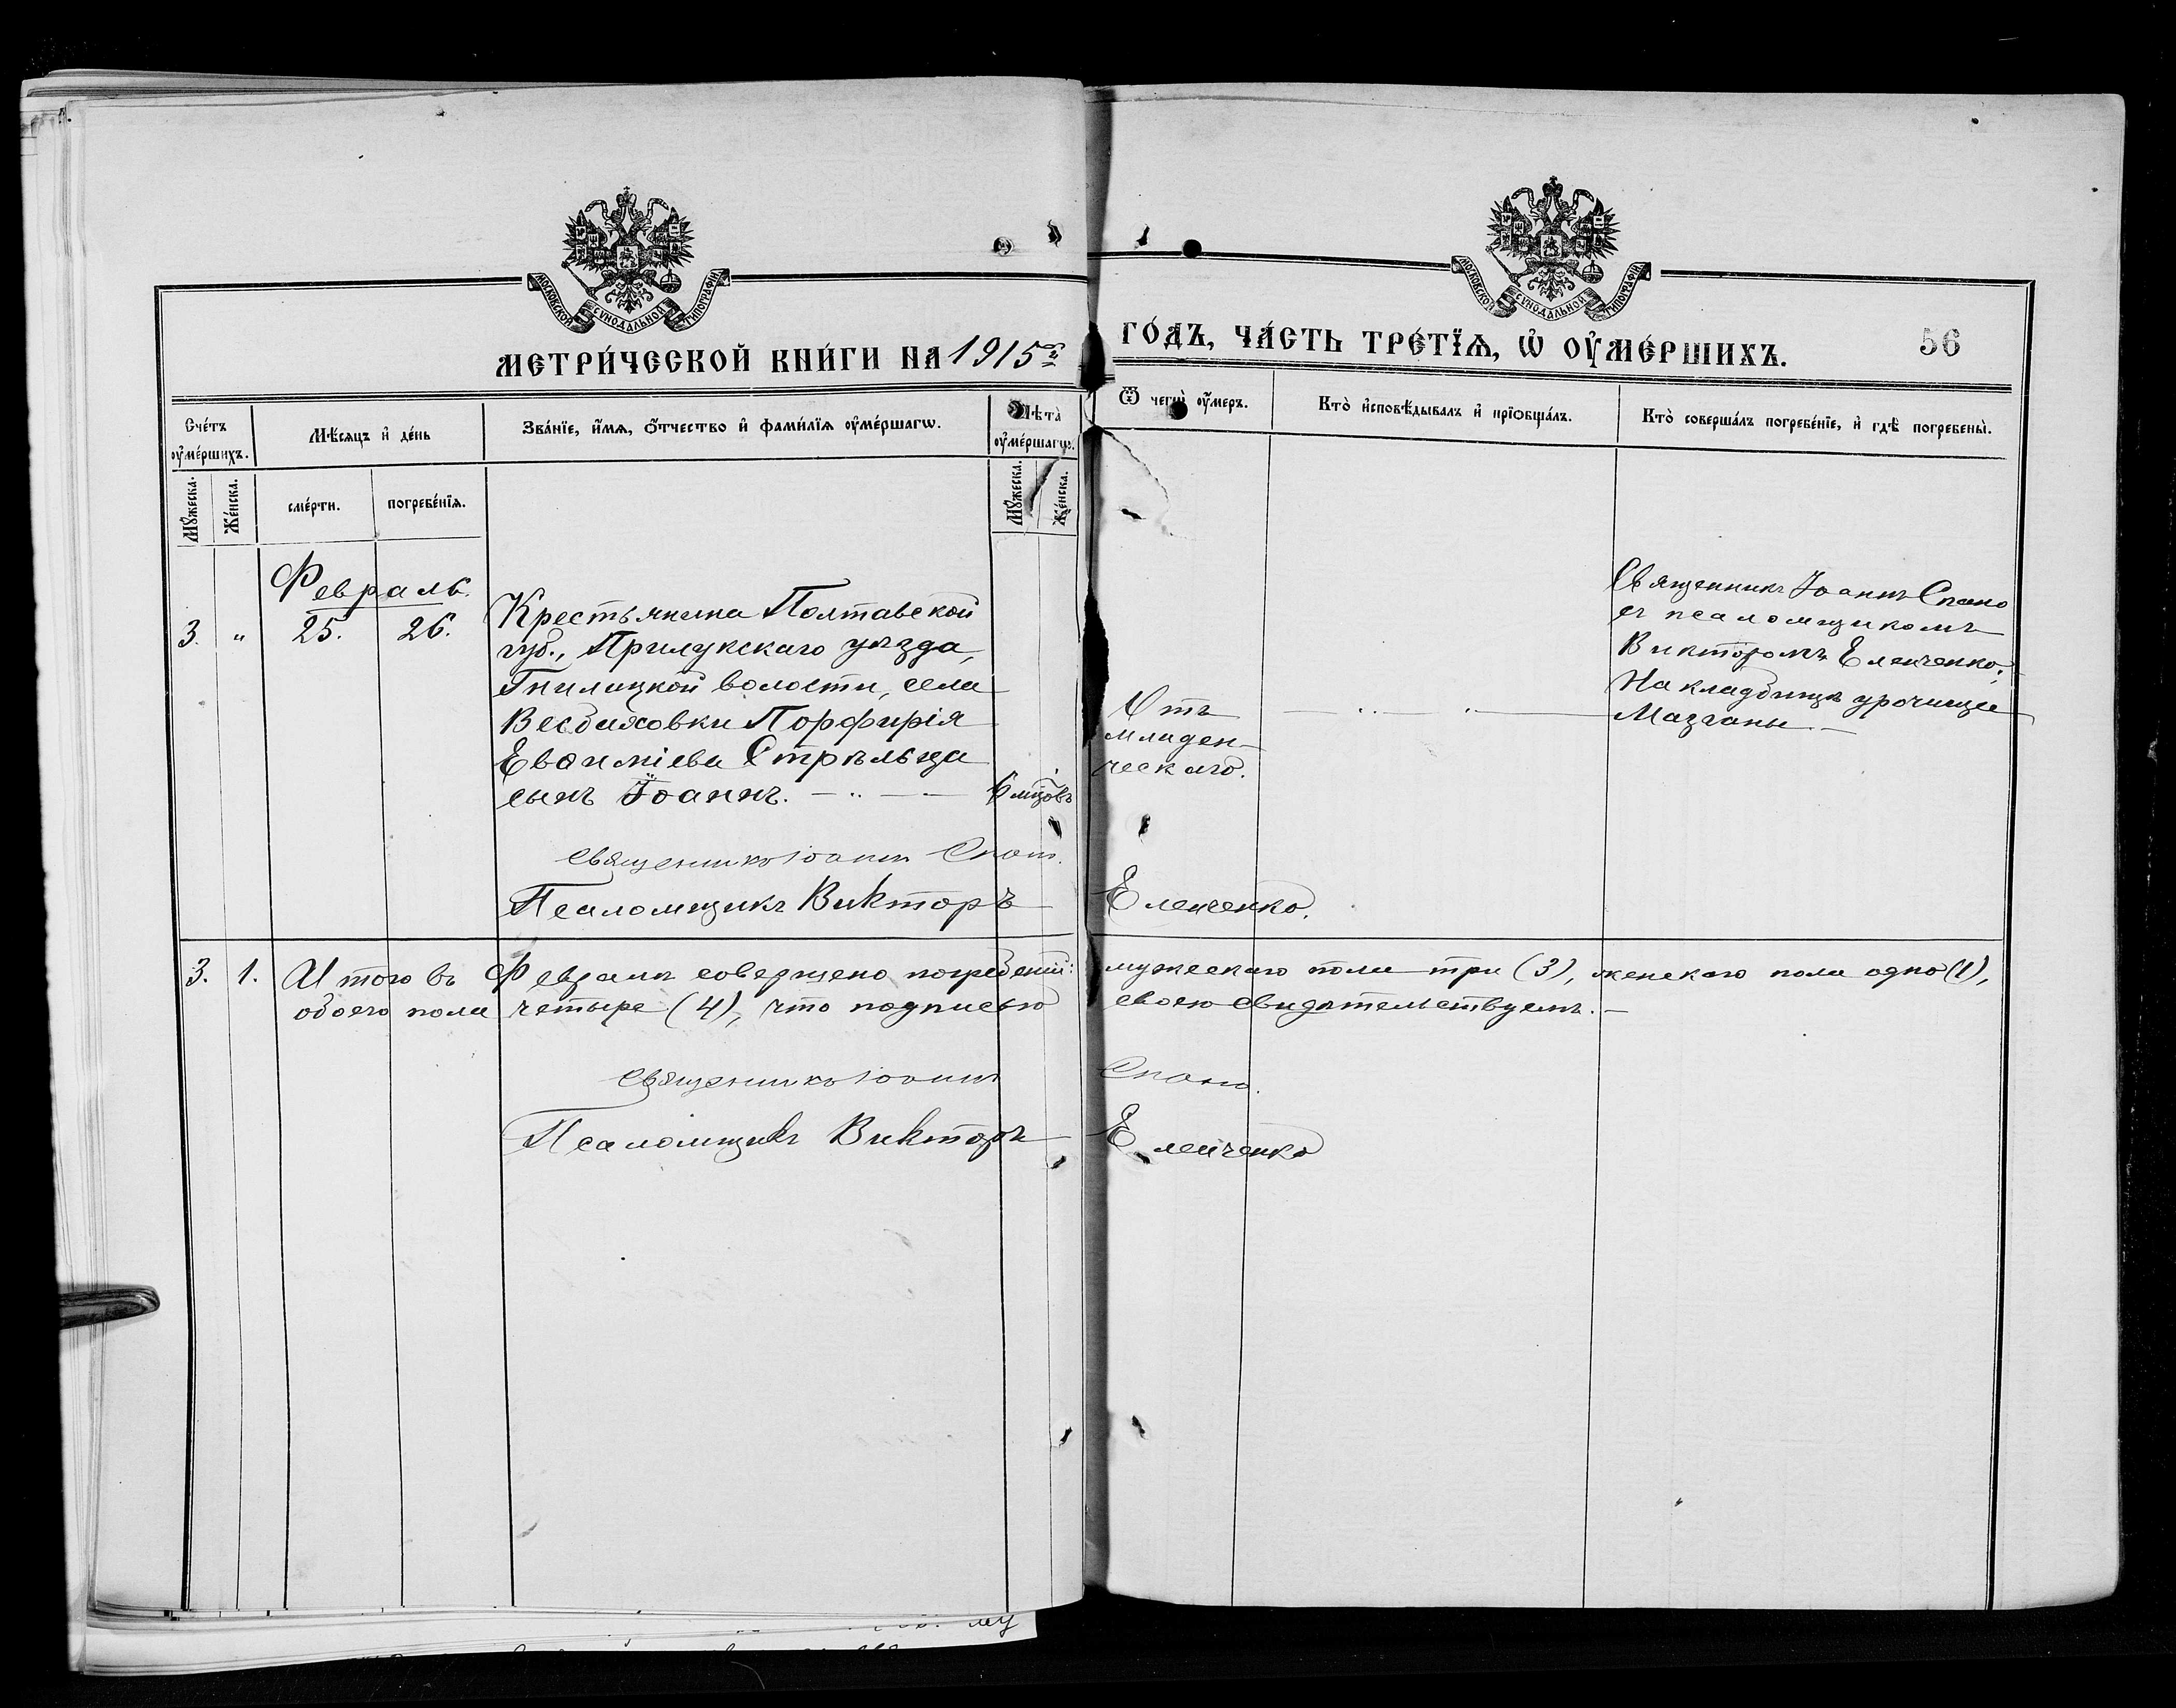 МОСКОВСКОЙ СУНОДАЛЬНОЙ ТИПОГРАФІИ
МОСКОВСКОЙ СУНОДАЛЬНОЙ ТИПОГРАФІИ
МЕТРИ́ЧЕСКОЙ КНИ́ГИ НА 1915й
ГО́ДЪ, ЧА́СТЬ ТРЕ́ТЇѦ, Ѡ҆ ОУ҆МЕ́РШИХЪ.
56
Сче́тъ оу҆ме́ршихъ.
Мѣ́сѧцъ и҆ де́нь
Зва́нїе, и҆́мѧ, ѻ҆́тчество и҆ фами́лїѧ оу҆ме́ршагѡ.
Лѣ́та оу҆ме́ршагѡ.
Ѿ чегѡ̀ оу҆́меръ.
Кто̀ и҆сповѣ́дывалъ и҆ прїѻбща́лъ.
Кто̀ соверша́лъ погребе́нїе, и҆ гдѣ̀ погребены̀.
Мꙋ́жеска.
Же́нска.
сме́рти.
погребе́нїѧ.
Мꙋ́жеска.
Же́нска.
Февраль.
3. „ 25. 26.
Крестьянина Полтавской
губ., Прилукскаго уѣзда,
Гнилицкой волости, села
Порфирія
Евѳиміева Стрѣльца
сынъ Іоаннъ. — „ —
6 мцовъ
Отъ
младен-
ческаго.
— „ „ —
Священникъ Іоаннъ
съ псаломщикомъ
Викторомъ Еленченко.
На кладбищѣ урочище
Мазганы. —
Священникъ Іоаннъ
Псаломщикъ Викторъ Еленченко.
3. 1. Итого въ Февралѣ совершено погребеній: мужескаго пола три (3), женскаго пола одно (1),
обоего пола четыре (4), что подписью своею свидѣтельствуемъ. —
Священникъ Іоаннъ
Псаломщикъ Викторъ Еленченко